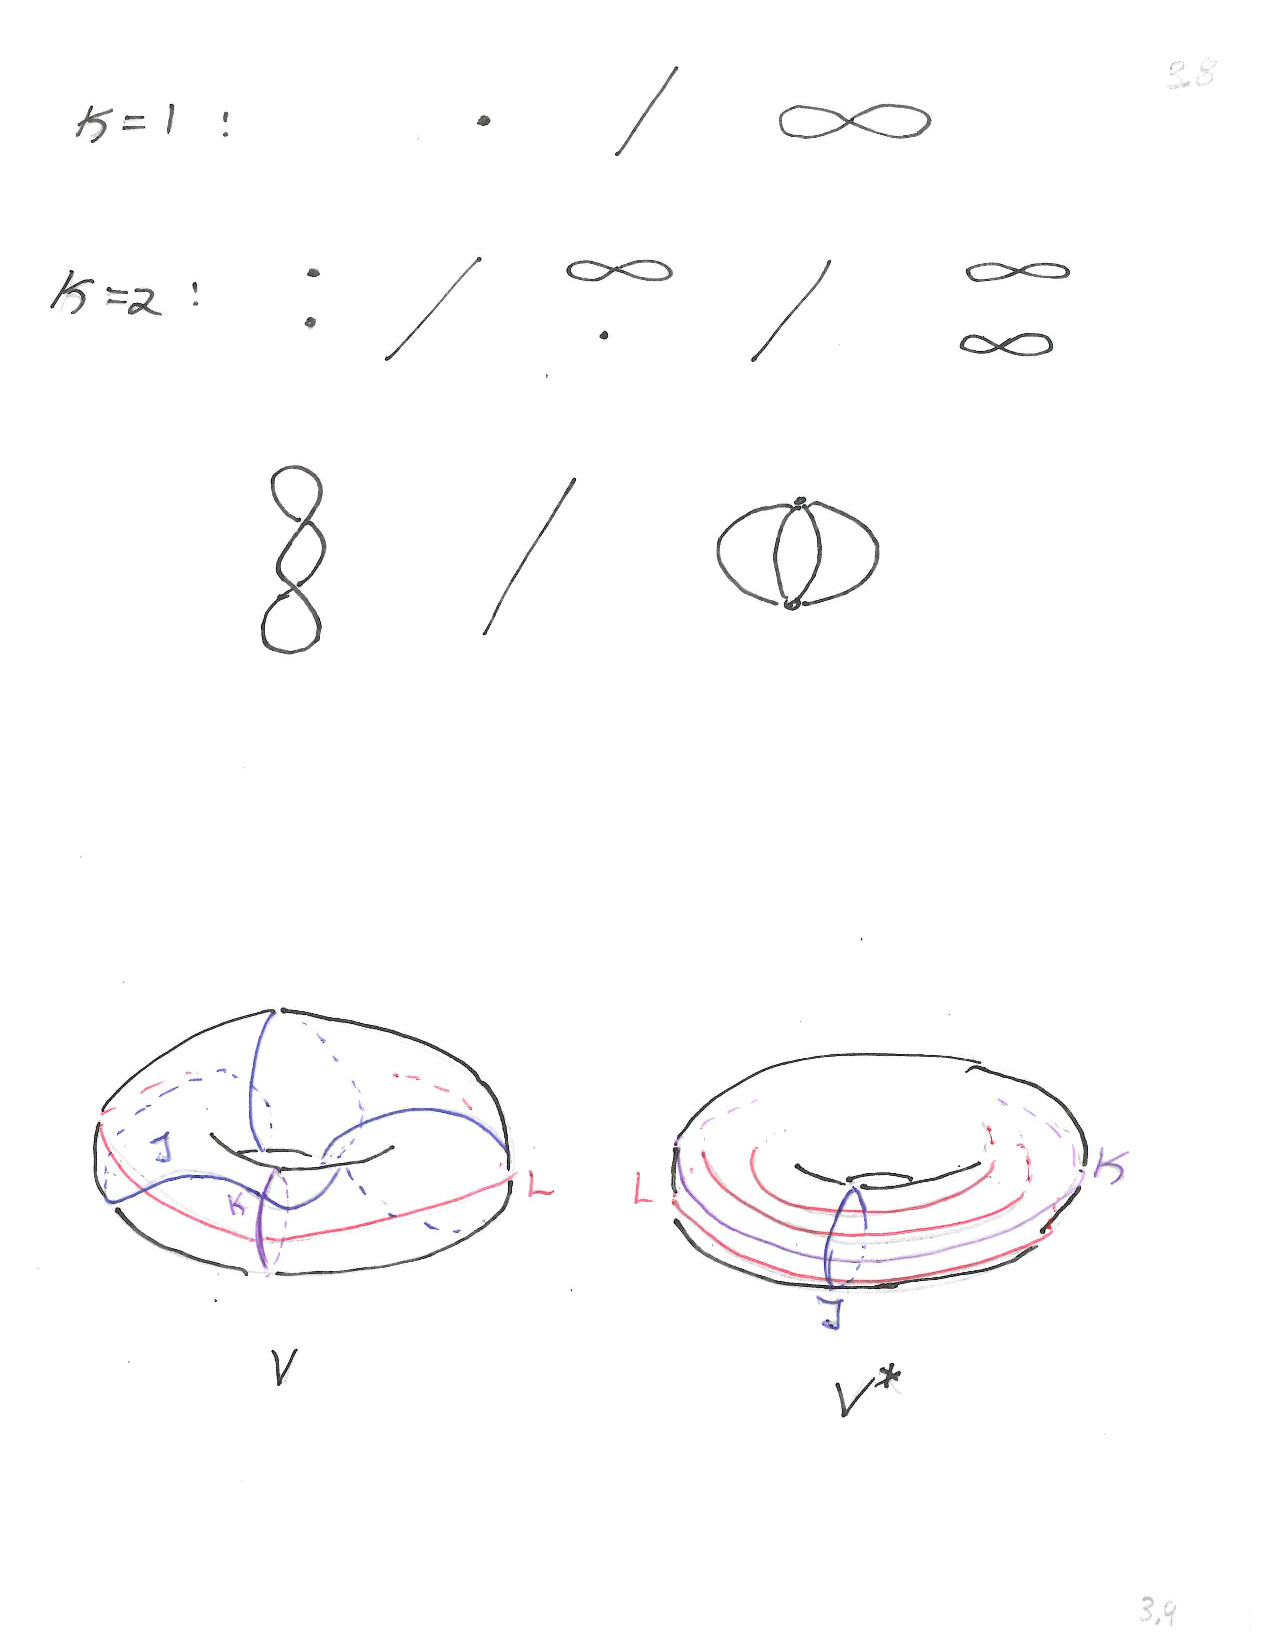 3.8
K=1 :
K=2 :
J
K
L
L
K
J
V
V*
3.9